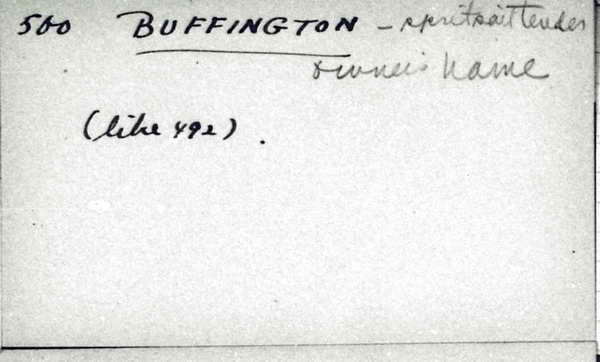 500 BUFFINGTON - spritsail tender
owner's name
(like 492).